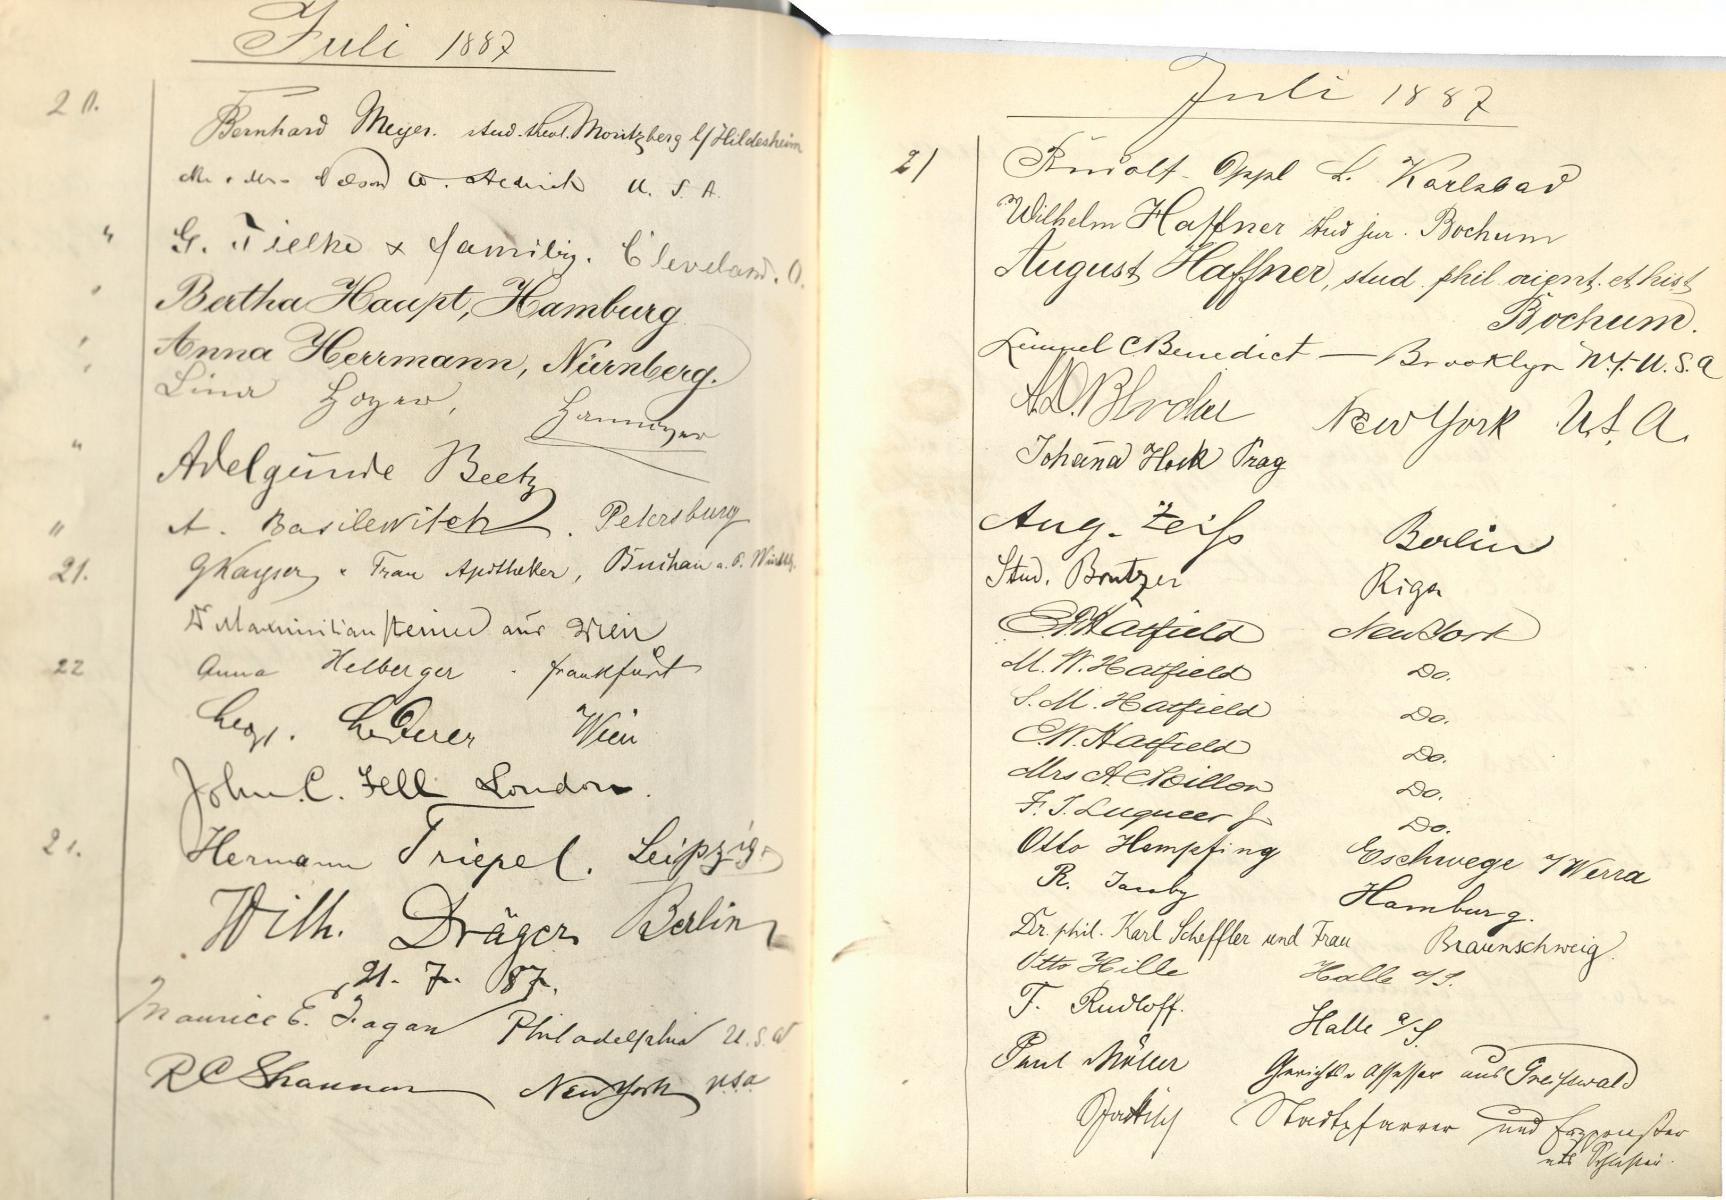 Juli 1887
20. Bernhard Meyer. stud. theol. Moritzberg b/Hildesheim
U. S. A.
" G. Tielke & family. Cleveland. O.
" Bertha Haupt, Hamburg
" Anna Herrmann, Nürnberg.
"
" Adelgunde Beetz
" A. Basilewitch. Petersburg
21. G Kayser & Frau Apotheker,
Dr Maximilian aus Wien
22 Anna Helberger - Frankfurt
Lederer Wien
John. C. Fell London.
21. Hermann Triepel. Leipzig.
Wilh. Dräger Berlin
21. 7. 87.
Maurice E. Fagan Philadelphia U. S. A
R C Shannon New York USA
Juli 1887
21 Rudolf Oppl Karlsbad
Wilhelm Haffner stud jur. Bochum
August Haffner, stud. phil orient. et hist
Bochum.
Lemuel C Benedict — Brooklyn N.Y. U. S. A
A. D. Blocher New York U. S. A.
Johanna Hock Prag
Aug. Zeiss Berlin
Stud. Brutzer Riga
Hatfield New York
M. W. Hatfield Do.
S. M. Hatfield Do.
C. W. Hatfield Do.
Mrs A. C. Do.
F. J. Luqueer Jr Do.
Otto Hempfing Eschwege a/Werra
R. Jacoby Hamburg.
Dr. phil. Karl Scheffler und Frau Braunschweig.
Otto Hille Halle a/S.
F. Rudloff. Halle a/S.
Paul Möller Gerichts-Assessor aus Greifswald
Stadtpfarrer und